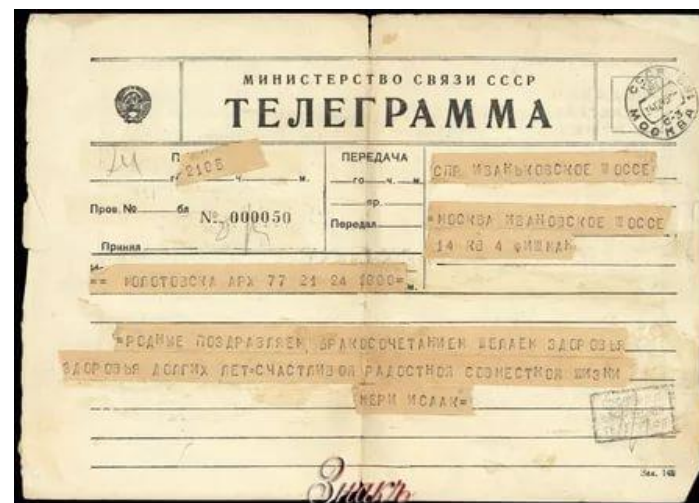 МИНИСТЕРСТВО СВЯЗИ СССР
ТЕЛЕГРАММА
2105
го ч. м.
Пров. № бл
№ 000050
Принял
ПЕРЕДАЧА
го ч. м.
пр.
Передал
СПР ИВАНЬКОВСКОЕ ШОССЕ
=МОСКВА ИВАНОВСКОЕ ШОССЕ
14 КВ 4 ФИШМАН
== МОЛОТОВСКА АРХ 77 21 24 1800=
=РОДНЫЕ ПОЗДРАВЛЯЕМ БРАКОСОЧЕТАНИЕМ ЖЕЛАЕМ ЗДОРОВЬЯ
ЗДОРОВЬЯ ДОЛГИХ ЛЕТ=СЧАСТЛИВОЙ РАДОСТНОЙ СОВМЕСТНОЙ ЖИЗНИ
МЕРИ ИСААК=
МОСКВА
Зак. 148
Знакъ